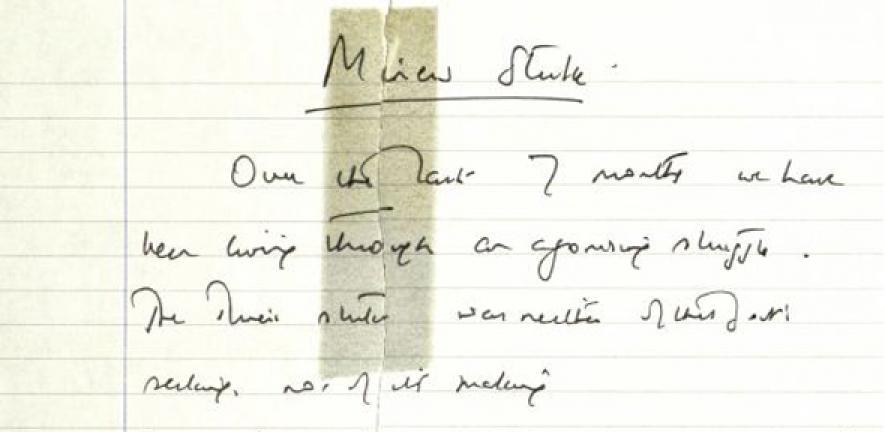 Miners Strike
Over the last 7 months we have
been living through an agonising struggle.
The Miners strike was neither of this Govt's
seeking, nor of its making